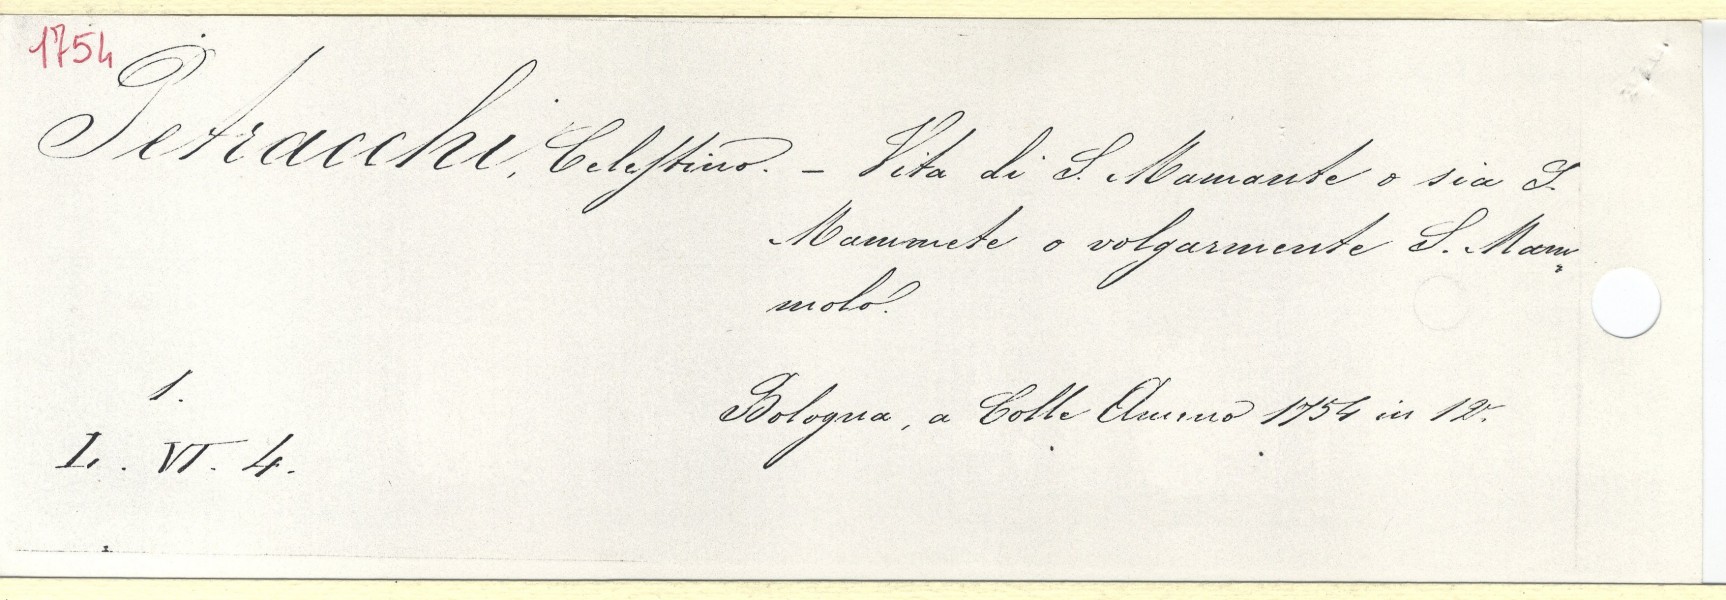 1754
Petracchi, Celestino. – Vita di S. Mamante o sia S.
Mammete o volgarmente S. Mam=
molo.
1.
Bologna, a Colle Ameno 1754 in 12.
L. VI. 4.